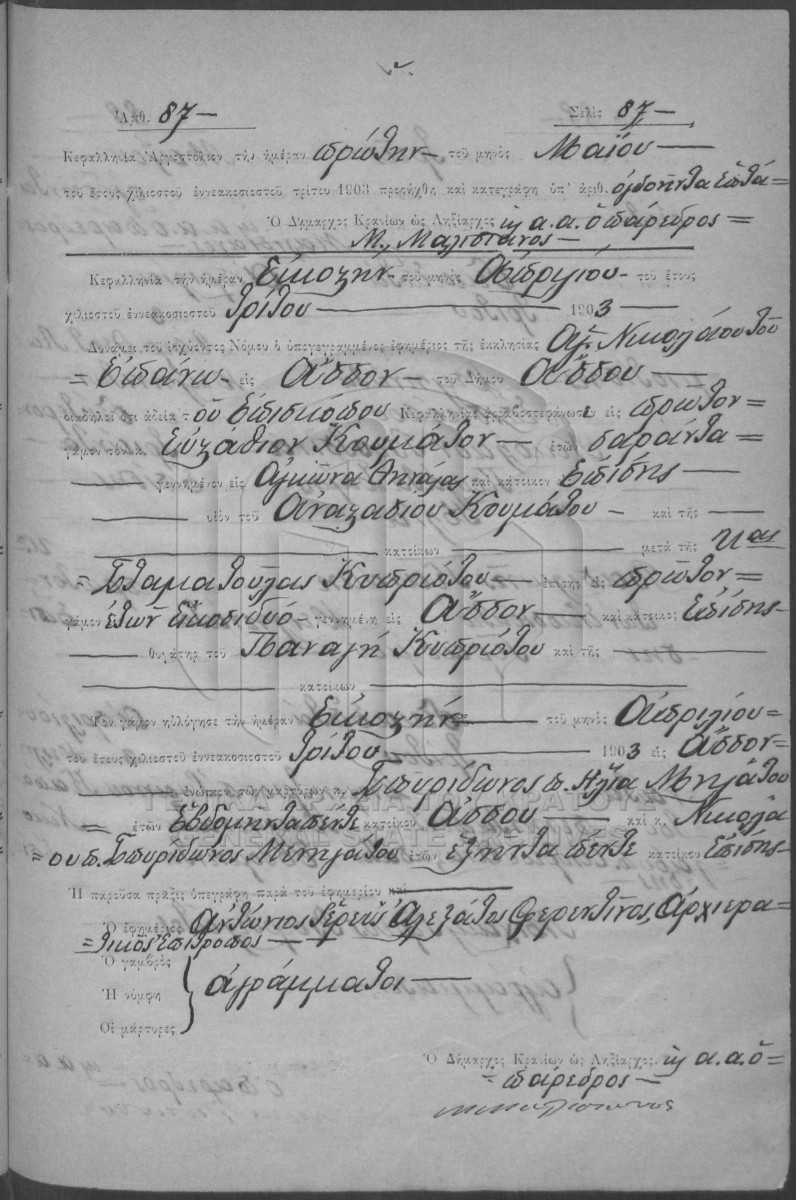 Ἀριθ. 87 — Σελὶς 87 —
Κεφαλληνία Ἀργοστόλιον τὴν ἡμέραν πρώτην — τοῦ μηνὸς Μαΐου —
τοῦ ἔτους χιλιοστοῦ ἐννεακοσιοστοῦ τρίτου 1903 προσήχθη καὶ κατεγράφη ὑπ' ἀριθ. ὀγδοήντα ἑπτά =
Ὁ Δήμαρχος Κρανίων ὡς Ληξίαρχος κ α.α. ὁ πάρεδρος =
Κεφαλληνία τὴν ἡμέραν Εἰκοστήν — τοῦ μηνὸς Ἀπριλίου — τοῦ ἔτους
χιλιοστοῦ ἐννεακοσιοστοῦ τρίτου — 1903 —
Δυνάμει τοῦ ἰσχύοντος Νόμου ὁ ὑπογεγραμμένος ἐφημέριος τῆς ἐκκλησίας Ἁγ. Νικολάου τοῦ
= Ἐπάνω — εἰς Ἄσσον — τοῦ Δήμου Ἄσσου —
διαδηλοῖ ὅτι ἀδείᾳ τοῦ Ἐπισκόπου Κεφαλληνίας εἰς πρῶτον =
γάμον τὸν κ. Εὐστάθιον Κουμάτον — ἐτῶν σαράντα =
— γεννημένον εἰς καὶ κάτοικον Ἐπίσης —
— υἱὸν τοῦ Ἀναστασίου Κουμάτου — καὶ τῆς —
— κατοίκων — μετὰ τῆς Κας
= Σταματούλας Κυπριότου — ἐπίσης εἰς πρῶτον =
γάμον ἐτῶν εἰκοσιδύο — γεννημένη εἰς Ἄσσον — καὶ κάτοικος Ἐπίσης —
— θυγάτηρ τοῦ Παναγῆ Κυπριότου καὶ τῆς —
— κατοίκων —
Τὸν γάμον ηὐλόγησε τὴν ἡμέραν Εἰκοστήν — τοῦ μηνὸς Ἀπριλίου =
τοῦ ἔτους χιλιοστοῦ ἐννεακοσιοστοῦ τρίτου — 1903 εἰς Ἄσσον =
— ἐνώπιον τῶν μαρτύρων κ. Σπυρίδωνος π. Ἠλία
= ἐτῶν ἑβδομήντα πέντε κάτοικον Ἄσσου — καὶ κ. Νικολά
= ου π. Σπυρίδωνος ἐτῶν ἑξήντα πέντε κατοίκου Ἐπίσης —
Ἡ παροῦσα πρᾶξις ὑπεγράφη παρὰ τοῦ ἐφημερίου καὶ —
Ὁ ἐφημέριος Ἀντώνιος Ἱερεὺς Φερεντῖνος, Ἀρχιερα =
= τικὸς Ἐπίτροπος —
Ὁ γαμβρὸς
Ἡ νύμφη ἀγράμματοι —
Οἱ μάρτυρες
Ὁ Δήμαρχος Κρανίων ὡς Ληξίαρχος. κ α.α. ὁ =
= πάρεδρος —